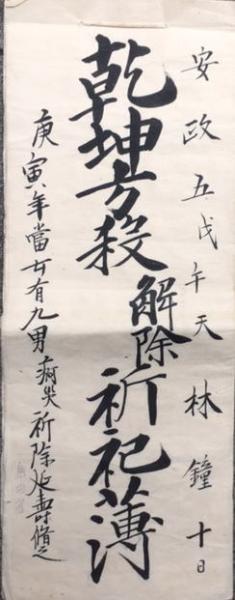 安政五戊午天林鐘十日
乾坤方殺解除祈祀薄
庚寅年當廿有九男病災祈除延壽脩之